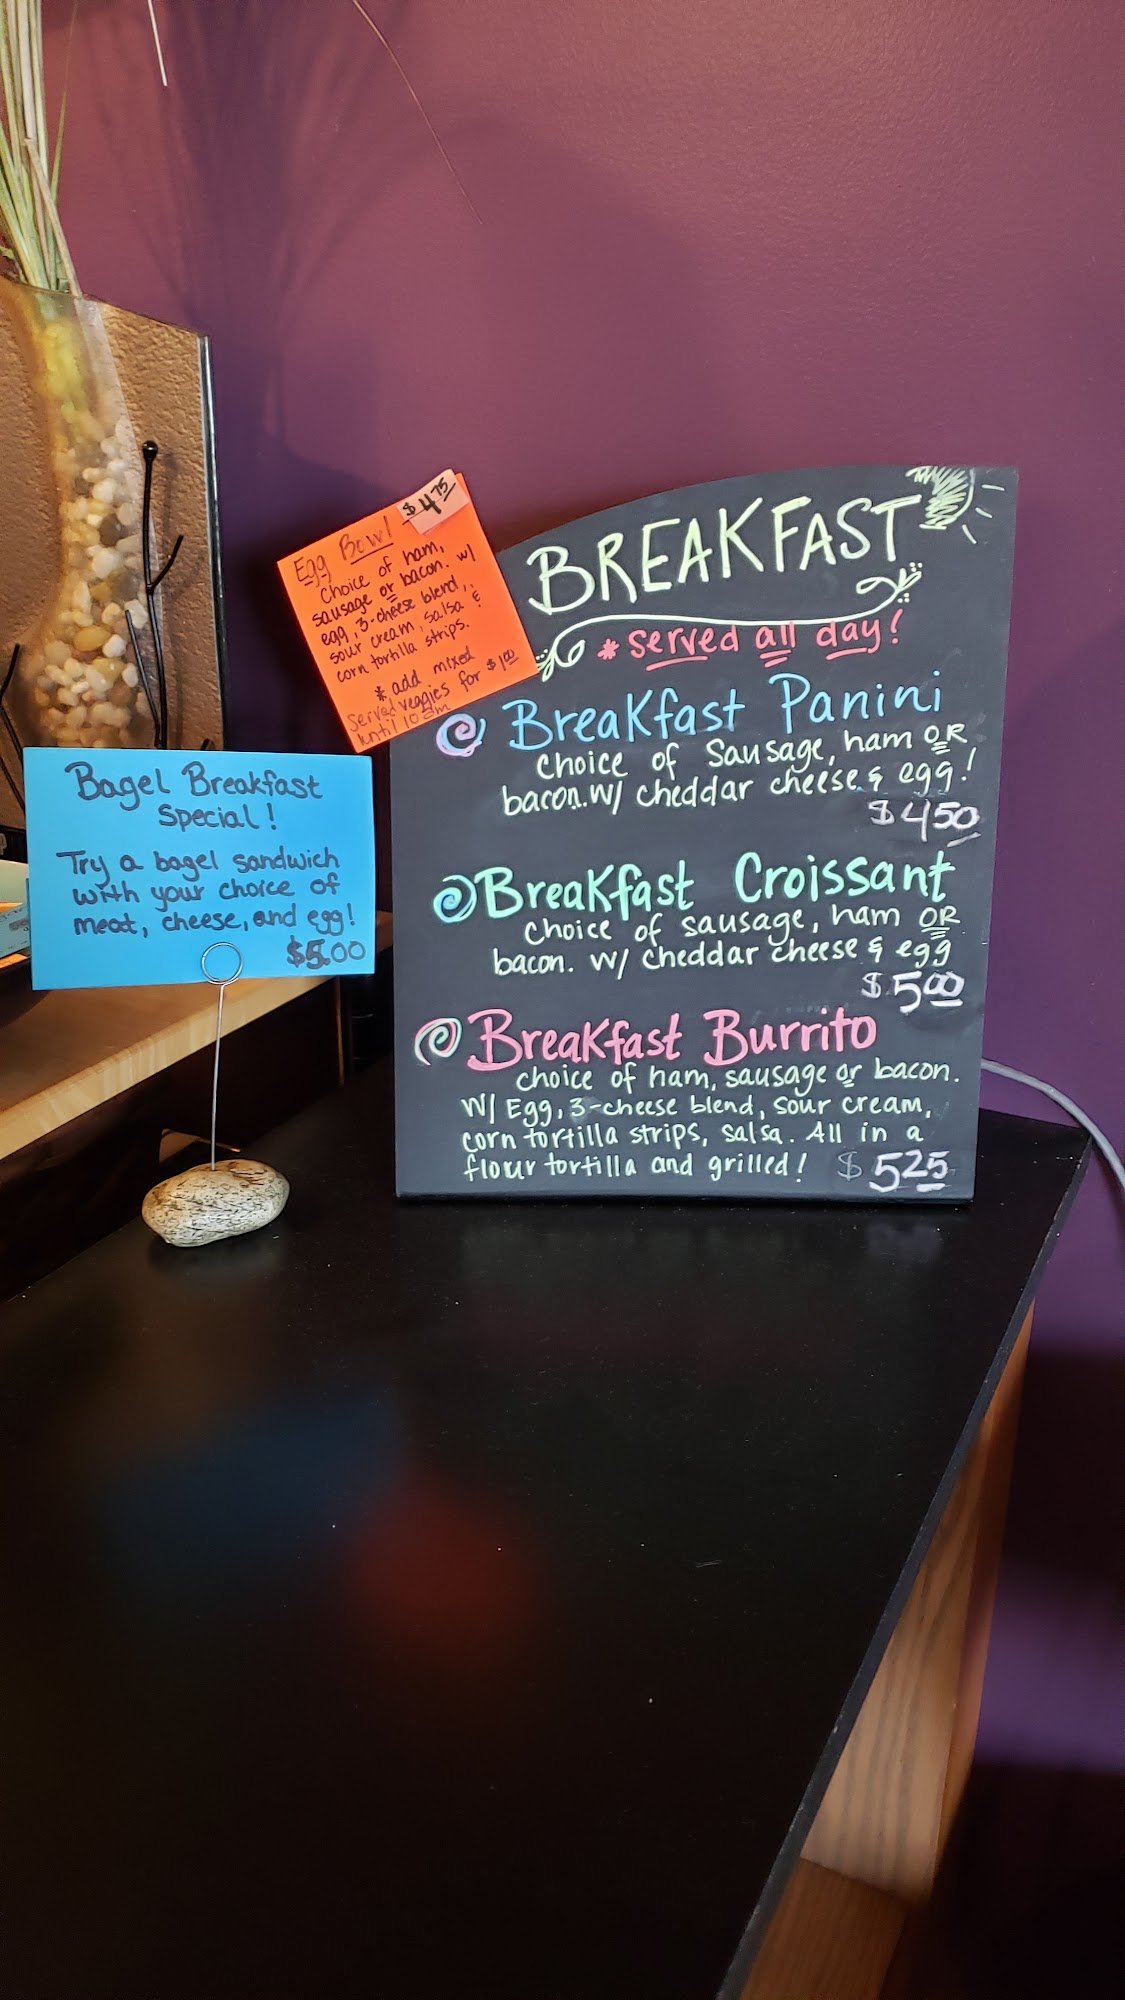 $4.75
Egg Bowl
Choice of ham,
sausage or bacon. w/
egg, 3-cheese blend,
sour cream, salsa &
corn tortilla strips.
* add mixed
veggies for $1.00
Served
until 10am
Bagel Breakfast
Special!
Try a bagel sandwich
with your choice of
meat, cheese, and egg!
$5.00
BREAKFAST
* served all day!
Breakfast Panini
choice of Sausage, ham OR
bacon. w/ cheddar cheese & egg!
$4.50
Breakfast Croissant
Choice of sausage, ham OR
bacon. w/ cheddar cheese & egg
$5.00
Breakfast Burrito
choice of ham, sausage or bacon.
W/ Egg, 3-cheese blend, sour cream,
corn tortilla strips, salsa. All in a
flour tortilla and grilled! $5.25